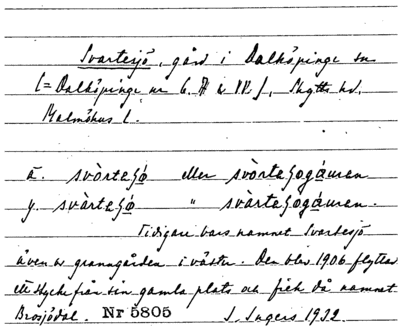 Svartesjö, gård i Dalköpinge sn
(= Dalköpinge nr 6. Skytts hd,
Malmöhus l.
ä. svòrteʃø eller svòrteʃogámen
y. svàrteʃø " svàrteʃogámen.
Tidigare bars namnet Svartesjö
även av granngården i väster. Den blev 1906 flyttad
ett stycke från sin gamla plats och fick då namnet
Brosjödal. Nr 5805 I. Ingers 1932